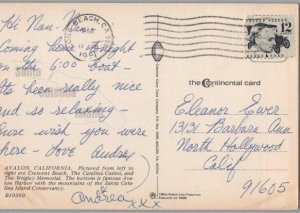 Hi Nan-Nan
Coming home tonight
on the 6:00 boat -
It's been really nice
and so relaxing -
Sure wish you were
here - Love Audrey
AVALON, CALIFORNIA. Pictured from left to
right are Crescent Beach, The Catalina Casino, and
The Wrigley Memorial. The bottom is famous Ava-
lon Harbor with the mountains of the Santa Cata-
lina Island Conservancy.
Andrea xxx
LONG BEACH, CA
UNITED STATES
12
the Continental card
Eleanor Ewer
1131 Barbara Ann
North Hollywood
Calif
91605